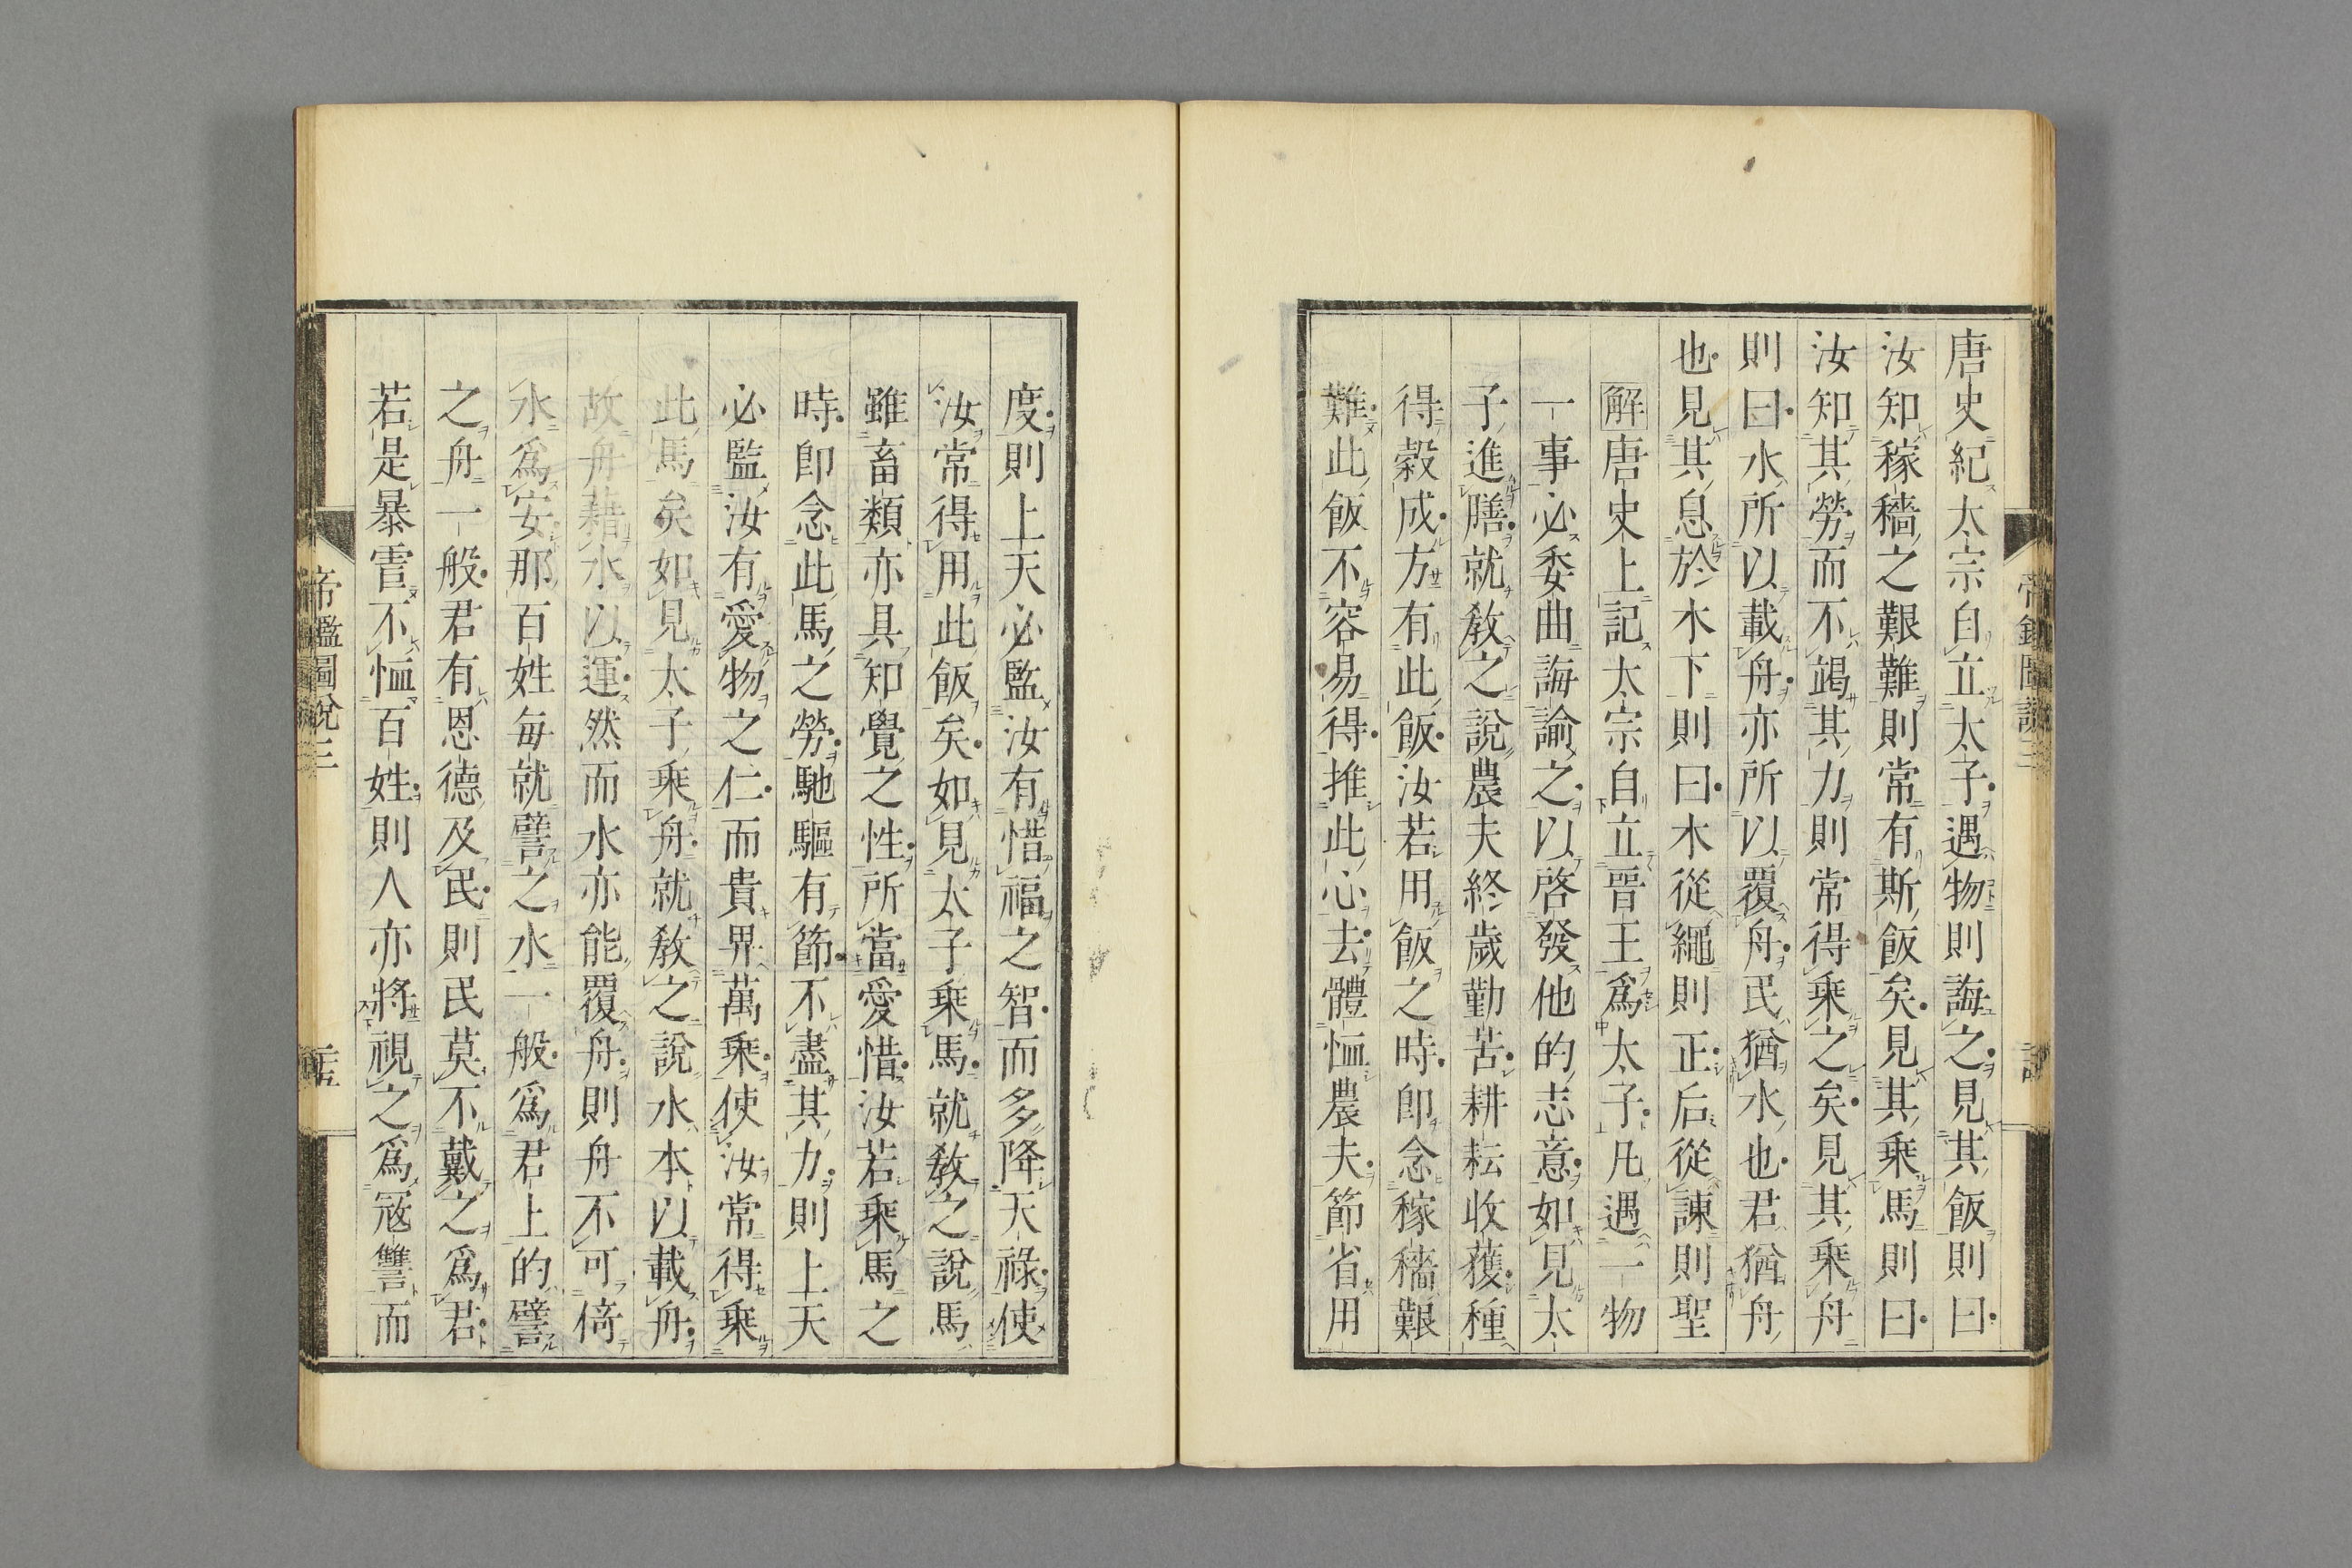 唐史紀太宗自立太子遇物則誨之見其飯則曰
汝知稼穡之艱難則常有斯飯矣見其乘馬則曰
汝知其勞而不竭其力則常得乘之矣見其乘舟
則曰水所以載舟亦所以覆舟民猶水也君猶舟
也見其息於木下則曰木從繩則正后從諫則聖
解唐史上記太宗自立晉王爲太子凡遇一物
一事必委曲誨諭之以啓發他的志意如見太
子進膳就敎之說農夫終歲勤苦耕耘收穫種
得穀成方有此飯汝若用飯之時即念稼穡艱
難此飯不容易得推此心去體恤農夫節省用
度則上天必監汝有惜福之智而多降天祿使
汝常得用此飯矣如見太子乘馬就敎之說馬
雖畜類亦具知覺之性所當愛惜汝若乘馬之
時即念此馬之勞馳驅有節不盡其力則上天
必監汝有愛物之仁而貴畀萬乘使汝常得乘
此馬矣如見太子乘舟就敎之說水本以載舟
故舟藉水以運然而水亦能覆舟則舟不可倚
水爲安那百姓每就譬之水一般爲君上的譬
之舟一般君有恩德及民則民莫不戴之爲君
若是暴虐不恤百姓則人亦將視之爲寇讐而
帝鑑圖說三